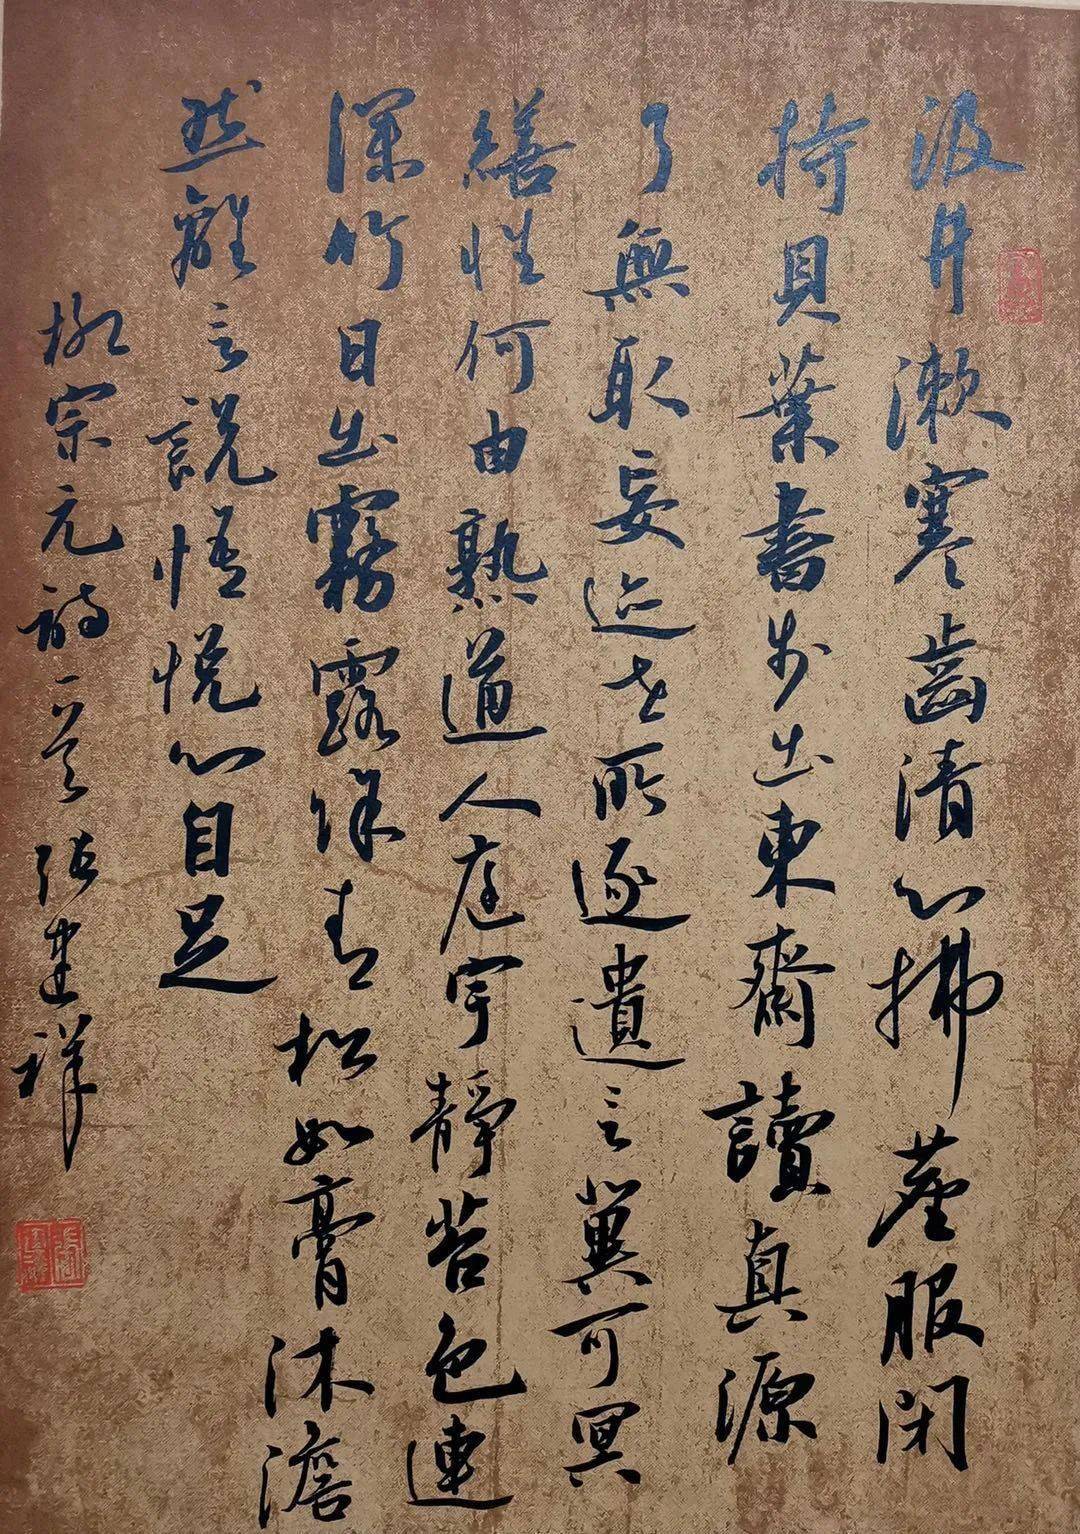 汲井漱寒齒清心拂塵服閑
持貝葉書步出東齋讀真源
了無取妄迹世所逐遺言冀可冥
繕性何由熟道人庭宇靜苔色連
深竹日出霧露餘青松如膏沐澹
然離言說悟悅心自足
柳宗元詩一首 張建祥